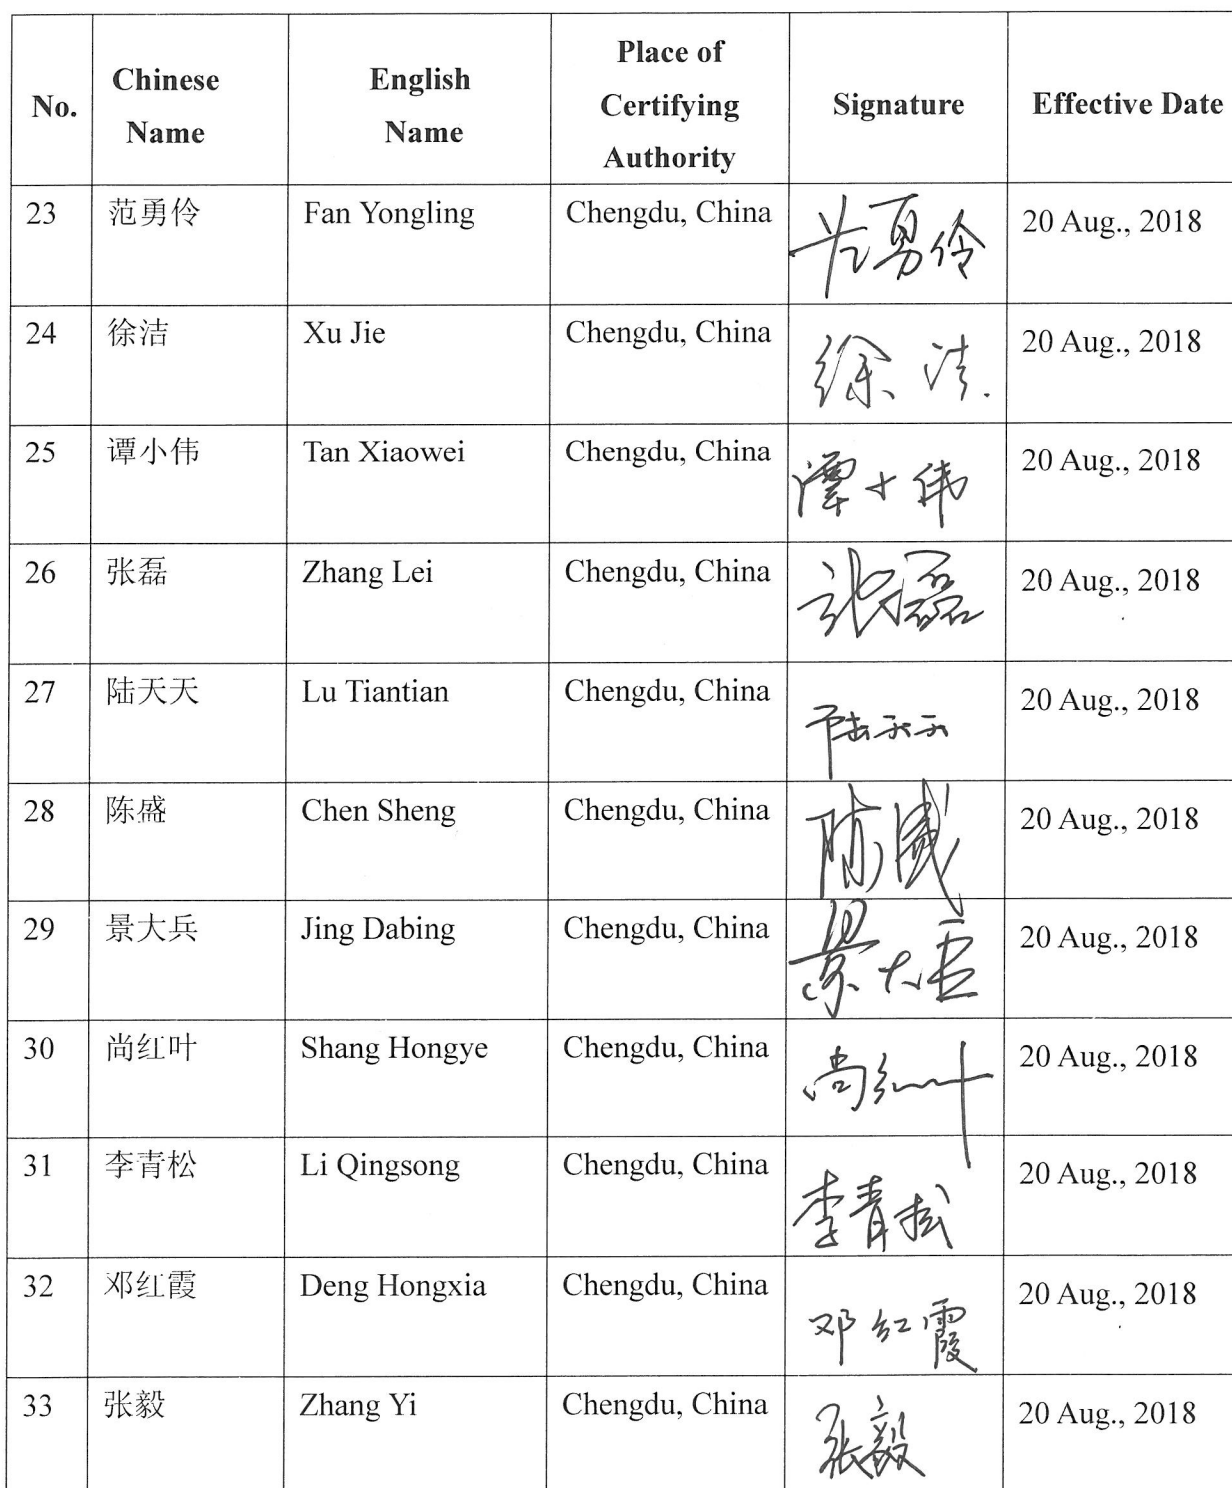 No.
Chinese
Name
English
Name
Place of
Certifying
Authority
Signature
Effective Date
23 范勇伶 Fan Yongling Chengdu, China 范勇伶 20 Aug., 2018
24 徐洁 Xu Jie Chengdu, China 徐洁 20 Aug., 2018
25 谭小伟 Tan Xiaowei Chengdu, China 谭小伟 20 Aug., 2018
26 张磊 Zhang Lei Chengdu, China 张磊 20 Aug., 2018
27 陆天天 Lu Tiantian Chengdu, China 陆天天 20 Aug., 2018
28 陈盛 Chen Sheng Chengdu, China 陈盛 20 Aug., 2018
29 景大兵 Jing Dabing Chengdu, China 景大兵 20 Aug., 2018
30 尚红叶 Shang Hongye Chengdu, China 尚红叶 20 Aug., 2018
31 李青松 Li Qingsong Chengdu, China 李青松 20 Aug., 2018
32 邓红霞 Deng Hongxia Chengdu, China 邓红霞 20 Aug., 2018
33 张毅 Zhang Yi Chengdu, China 张毅 20 Aug., 2018